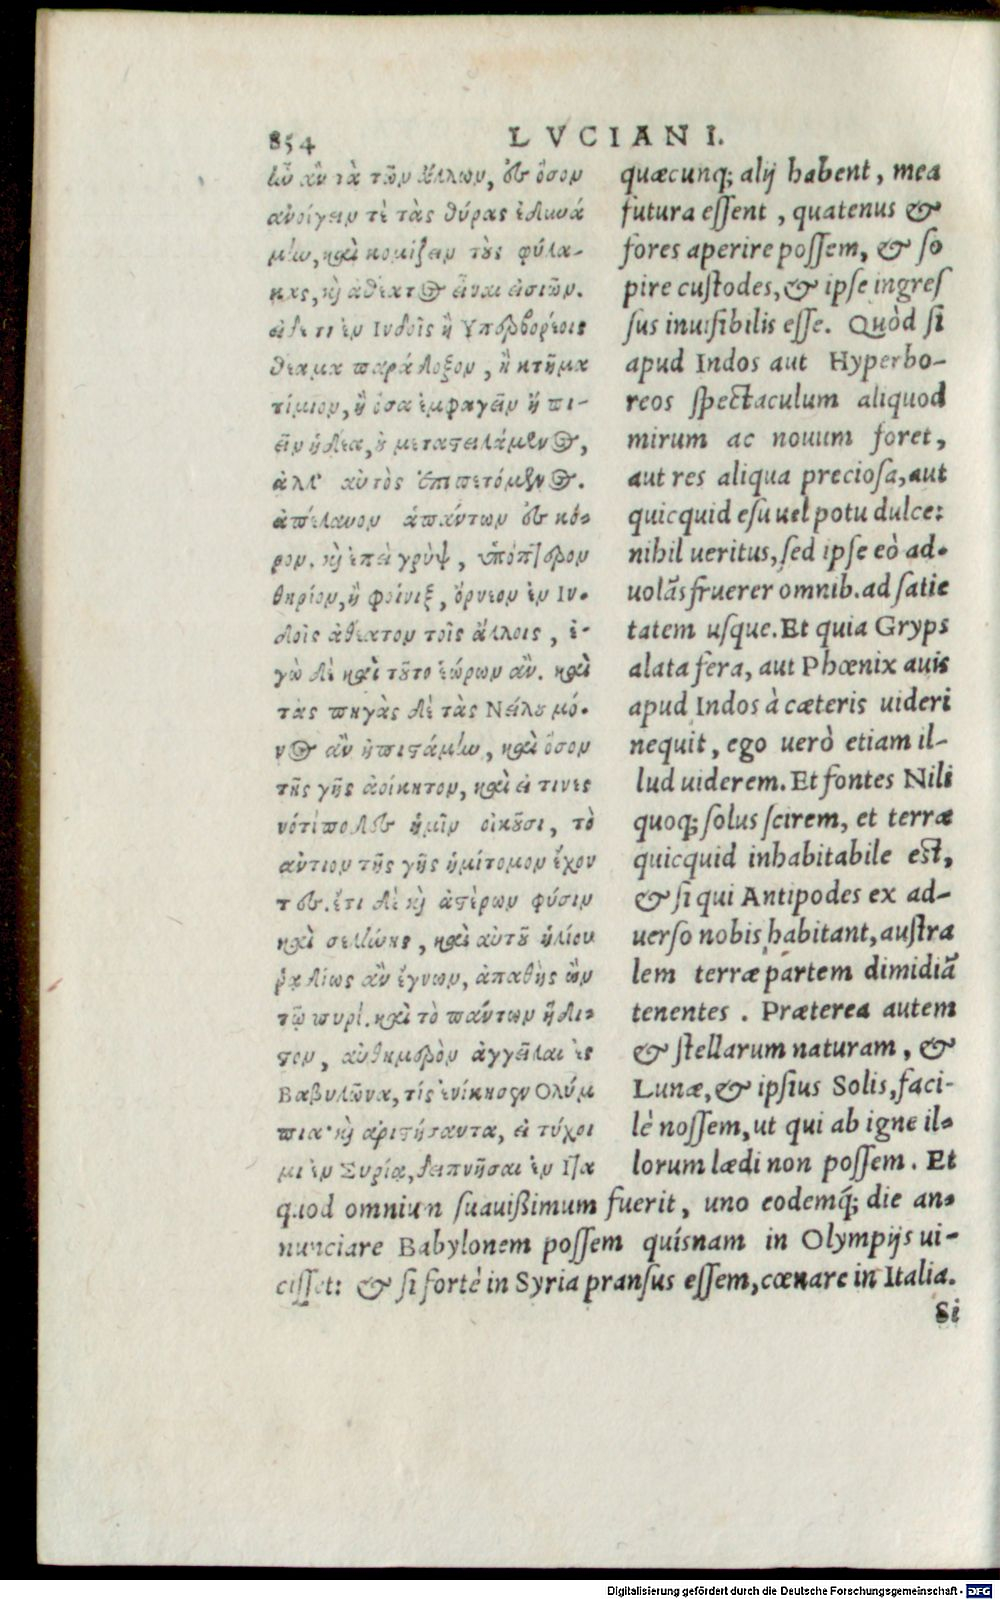 854 LVCIANI.
ἦν ἂν τὰ τῶν ἄλλων, ἐς ὅσον
ἀνοίγειν τὲ τὰς θύρας ἐδυνά
μην, καὶ κοιμίζειν τοὺς φύλα-
κας, καὶ ἀθέατος εἶναι εἰσιών.
εἰ δέ τι ἐν Ινδοῖς ἢ Υπερβορέοις
θέαμα παράδοξον, ἢ κτῆμα
τίμιον, ἢ ὅσα ἐμφαγεῖν ἢ πι-
εῖν ἡδέα, οὐ μεταστειλάμενος,
ἀλλ' αὐτὸς ἐπιπετόμενος.
ἀπέλαυον ἁπάντων ἐς κό-
ρον. καὶ ἐπεὶ γρὺψ, ὑπόπτερον
θηρίον, ἢ φοίνιξ, ὄρνεον ἐν Ιν-
δοῖς ἀθέατον τοῖς ἄλλοις, ἐ-
γὼ δὲ καὶ τοῦτο ἑώρων ἄν. καὶ
τὰς πηγὰς δὲ τὰς Νείλου μό-
νος ἂν ἠπιστάμην, καὶ ὅσον
τῆς γῆς ἀοίκητον, καὶ εἴ τινες
ἡμῖν οἰκοῦσι, τὸ
ἀντιον τῆς γῆς ἡμίτομον ἔχον
τες. ἔτι δὲ καὶ ἀστέρων φύσιν
καὶ σελήνης, καὶ αὐτοῦ ἡλίου
ῥᾳδίως ἂν ἔγνων, ἀπαθὴς ὢν
τῷ πυρί. καὶ τὸ πάντων ἥδι-
στον, αὐθημερὸν ἀγγεῖλαι ἐς
Βαβυλῶνα, τίς ἐνίκησεν Ολύμ
πια· καὶ ἀριστήσαντα, εἰ τύχοι
μι ἐν Συρίᾳ, δειπνῆσαι ἐν Ιτα
quæcunq; alij habent, mea
futura essent, quatenus &
fores aperire possem, & so
pire custodes, & ipse ingres
sus inuisibilis esse. Quòd si
apud Indos aut Hyperbo-
reos spectaculum aliquod
mirum ac nouum foret,
aut res aliqua preciosa, aut
quicquid esu uel potu dulce:
nihil ueritus, sed ipse eò ad-
uolãs fruerer omnib. ad satie
tatem usque. Et quia Gryps
alata fera, aut Phœnix auis
apud Indos à cæteris uideri
nequit, ego uerò etiam il-
lud uiderem. Et fontes Nili
quoq; solus scirem, et terræ
quicquid inhabitabile est,
& si qui Antipodes ex ad-
uerso nobis habitant, austra
lem terræ partem dimidiã
tenentes. Præterea autem
& stellarum naturam, &
Lunæ, & ipsius Solis, faci-
lè nossem, ut qui ab igne il-
lorum lædi non possem. Et
quod omnium suauißimum fuerit, uno eodemq́; die an-
nunciare Babylonem possem quísnam in Olympijs ui-
cisset: & si fortè in Syria pransus essem, cœnare in Italia.
Si
Digitalisierung gefördert durch die Deutsche Forschungsgemeinschaft - DFG